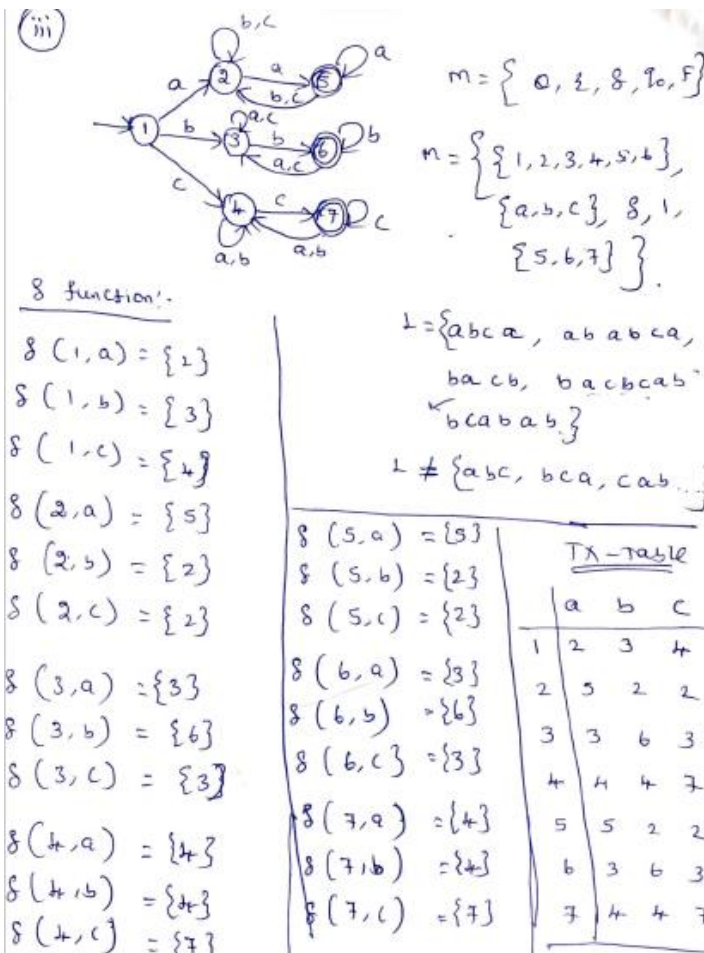 iii
b,c
a
a
2
a
5
b,c
a,c
1
b
3
b
6
b
a,c
c
4
c
7
c
a,b
a,b
m = { Q, Σ, δ, q0, F}
m = { {1,2,3,4,5,6},
{a,b,c}, δ, 1,
{5,6,7} }.
δ function:-
δ (1,a) = {2}
δ (1,b) = {3}
δ (1,c) = {4}
δ (2,a) = {5}
δ (2,b) = {2}
δ (2,c) = {2}
δ (3,a) = {3}
δ (3,b) = {6}
δ (3,c) = {3}
δ (4,a) = {4}
δ (4,b) = {4}
δ (4,c) = {7}
L = {abca, ababca,
bacb, bacbcab
bcabab.}
L ≠ {abc, bca, cab...}
δ (5,a) = {5}
δ (5,b) = {2}
δ (5,c) = {2}
δ (6,a) = {3}
δ (6,b) = {6}
δ (6,c} = {3}
δ (7,a) = {4}
δ (7,b) = {4}
δ (7,c) = {7}
TX-Table
a b c
1 2 3 4
2 5 2 2
3 3 6 3
4 4 4 7
5 5 2 2
6 3 6 3
7 4 4 7